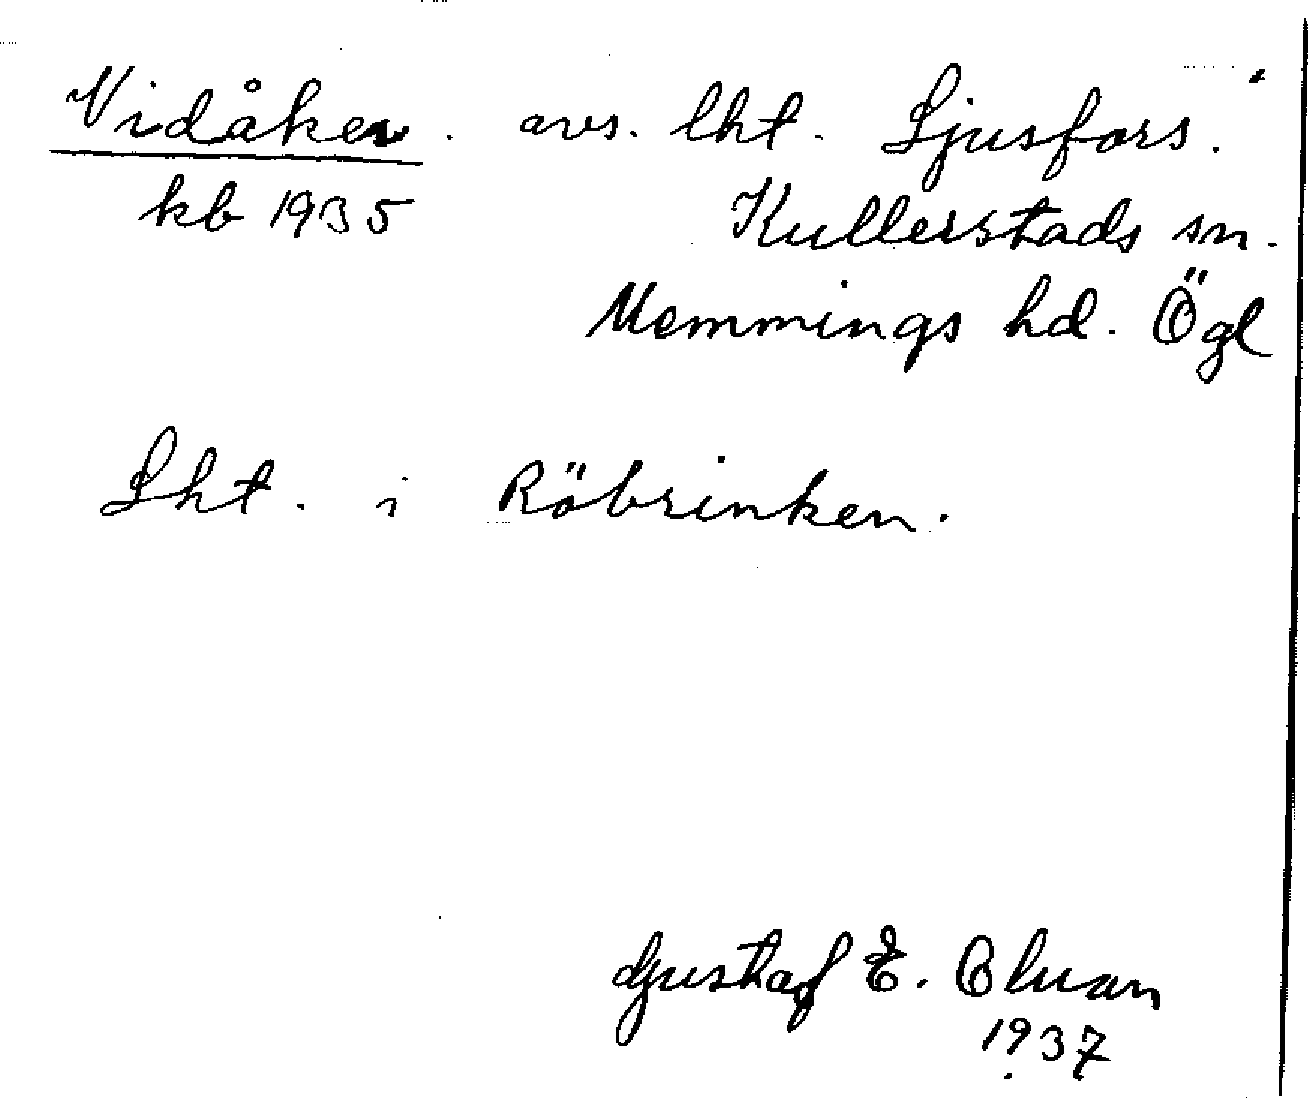 Vidåker. avs. lht. Ljusfors.
kb 1935 Kullerstads sn.
Memmings hd. Ögl
Lht. i Röbrinken.
Gustaf E.
1937